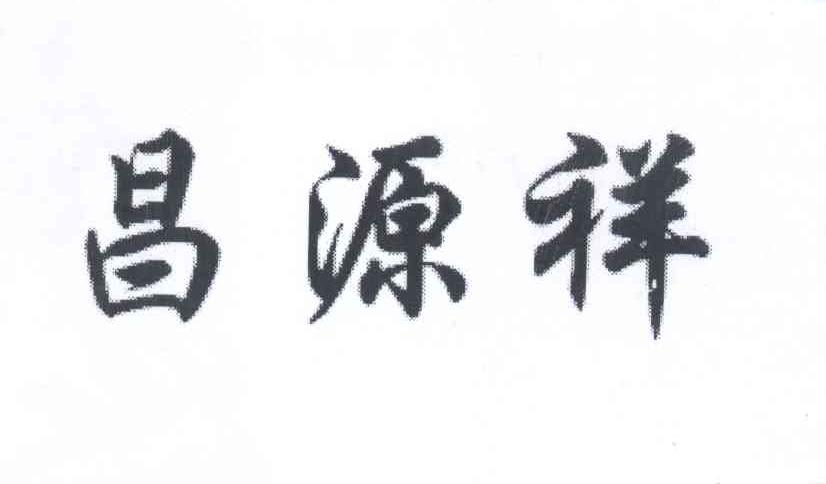 昌源祥